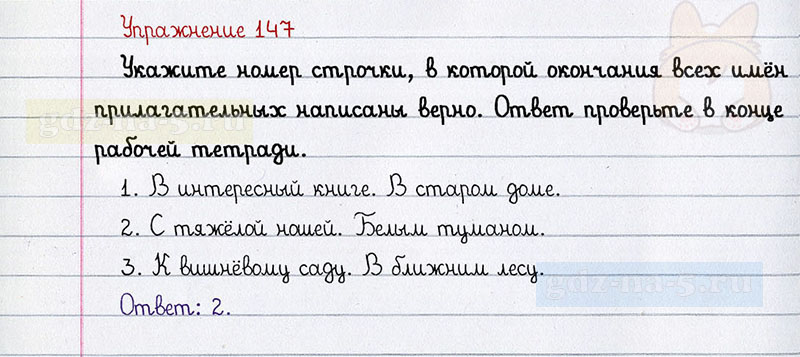 Упражнение 147
Укажите номер строчки, в которой окончания всех имён
прилагательных написаны верно. Ответ проверьте в конце
рабочей тетради.
1. В интересный книге. В старом доме.
2. С тяжёлой ношей. Белым туманом.
3. К вишнёвому саду. В ближним лесу.
Ответ: 2.
gdz-na-5.ru
gdz-na-5.ru